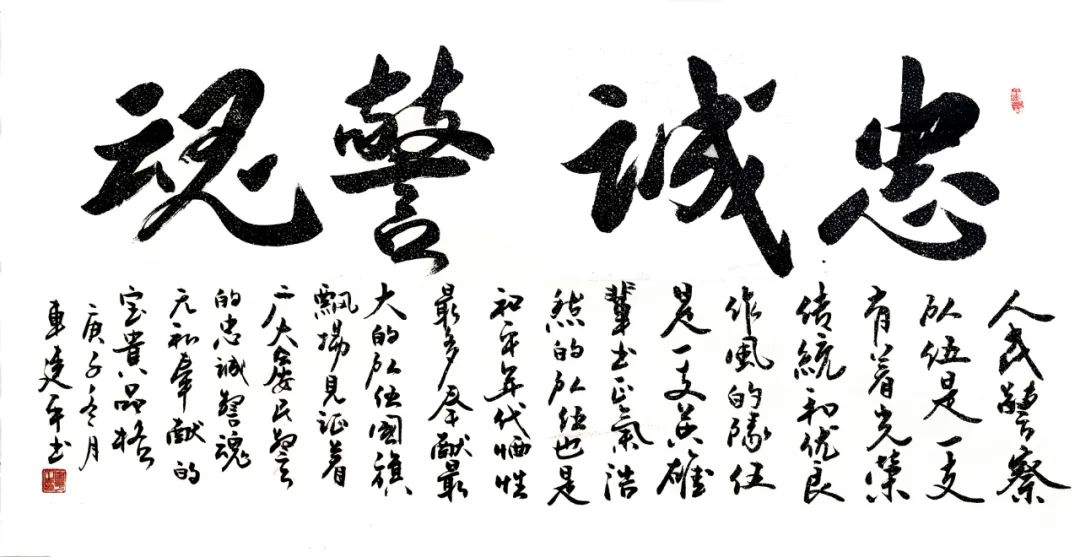 忠誠警魂
人民警察
队伍是一支
有着光荣
传統和优良
作風的隊伍
是一支英雄
輩出正氣浩
然的队伍也是
和平年代牺牲
最多奉献最
大的队伍國旗
飘揚見证着
广大公安民警
的忠诚警魂
无私奉献的
宝貴品格
庚子冬月
車延平书